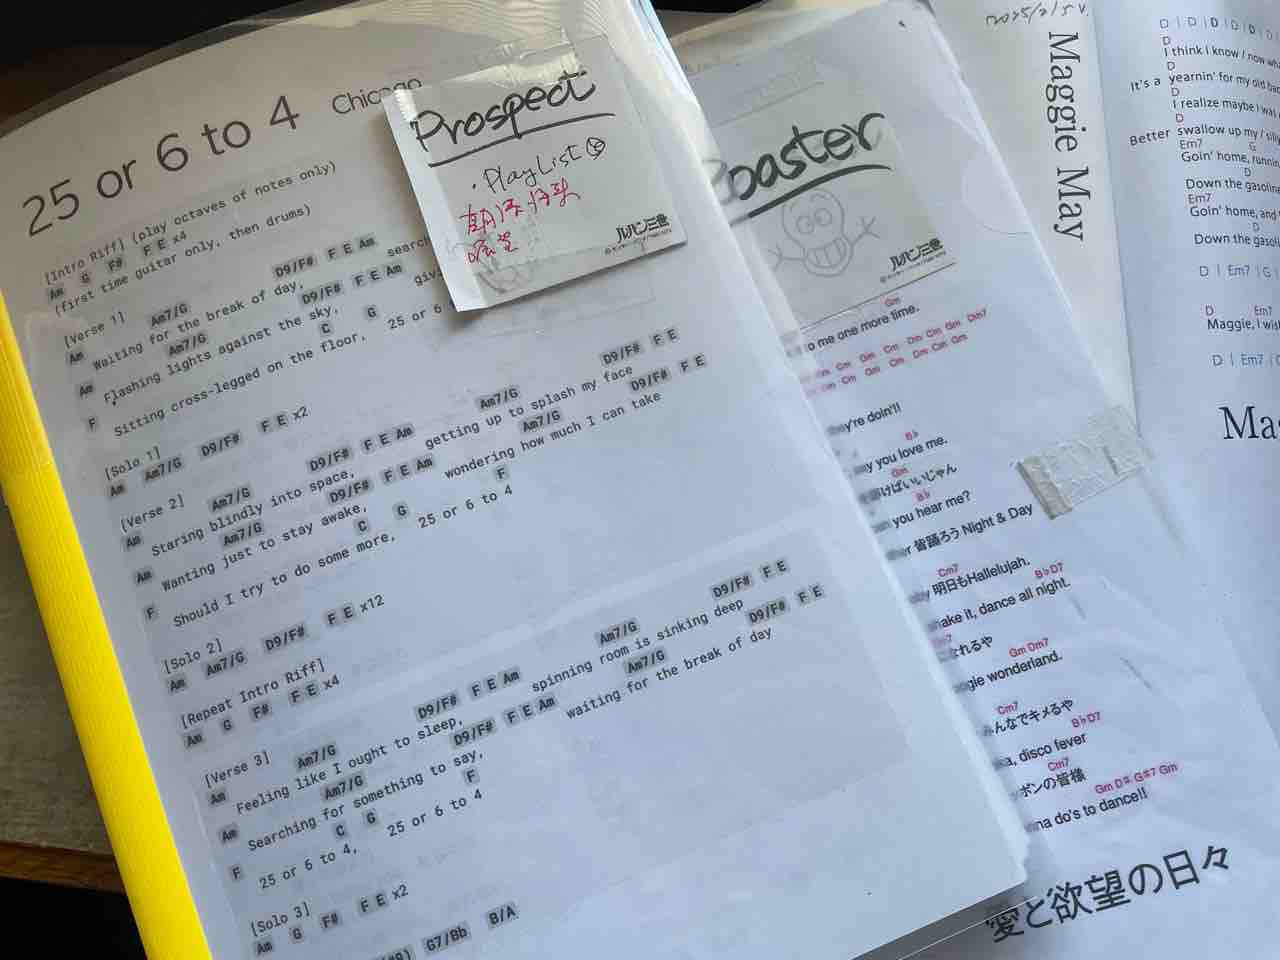 25 or 6 to 4 Chicago
[Intro Riff] (play octaves of notes only)
Am G F# F E x4
(first time guitar only, then drums)
[Verse 1]
Am Am7/G D9/F# F E Am
Waiting for the break of day, search
Am Am7/G D9/F# F E Am
Flashing lights against the sky, givi
F C G
Sitting cross-legged on the floor, 25 or 6
[Solo 1]
Am Am7/G D9/F# F E x2
[Verse 2]
Am Am7/G D9/F# F E Am Am7/G D9/F# F E
Staring blindly into space, getting up to splash my face
Am Am7/G D9/F# F E Am Am7/G D9/F# F E
Wanting just to stay awake, wondering how much I can take
F C G F
Should I try to do some more, 25 or 6 to 4
[Solo 2]
Am Am7/G D9/F# F E x12
[Repeat Intro Riff]
Am G F# F E x4
[Verse 3]
Am Am7/G D9/F# F E Am Am7/G D9/F# F E
Feeling like I ought to sleep, spinning room is sinking deep
Am Am7/G D9/F# F E Am Am7/G D9/F# F E
Searching for something to say, waiting for the break of day
F C G F
25 or 6 to 4, 25 or 6 to 4
[Solo 3]
Am G F# F E x2
G7/Bb B/A
Prospect
・PlayList
ルパン三世
oaster
ルパン三世
Gm
to me one more time.
Cm Gm Cm Dm Cm Gm Dm7
Cm Gm Cm Dm Cm Gm
ey're doin'!!
B♭
ay you love me.
Gm
けばいいじゃん
B♭
you hear me?
er 皆踊ろう Night & Day
Cm7
明日もHallelujah.
B♭ D7
ake it, dance all night.
れるや
Gm Dm7
gie wonderland.
Cm7
みんなでキメるや
B♭ D7
a, disco fever
Cm7
ポンの皆様
Gm D# G#7 Gm
nna do's to dance!!
愛と欲望の日々
Maggie May
D | D | D | D | D |
D
I think I know / now wha
D
It's a yearnin' for my old bac
D
I realize maybe I wa
D
Better swallow up my / silly
Em7 G
Goin' home, runnin
D
Down the gasoline
Em7
Goin' home, and
D
Down the gasoli
D | Em7 | G |
D Em7
Maggie, I wis
D | Em7 | G
Ma